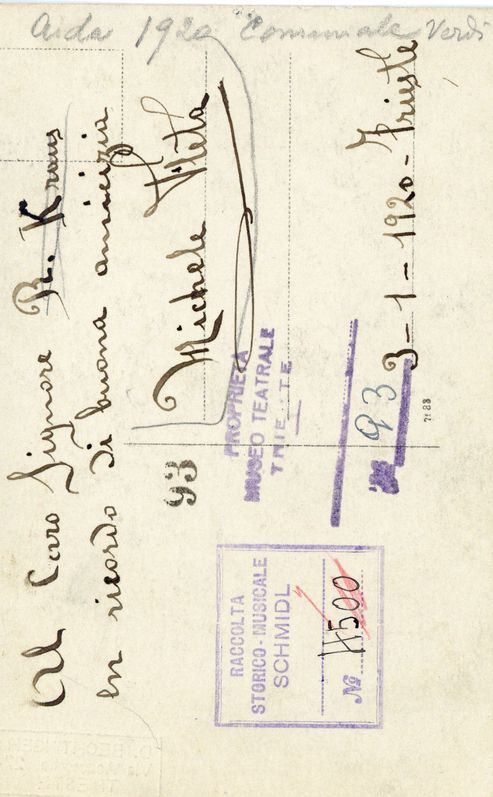 Aida 1920 "Comunale Verdi
Al Caro Signore R. Kraus
in ricordo di buona amicizia
Michele Fleta
3-1-1920-Trieste
93
PROPRIETÀ
MUSEO TEATRALE
TRIESTE
93
7183
RACCOLTA
STORICO-MUSICALE
SCHMIDL
№ 4500
TRIESTE